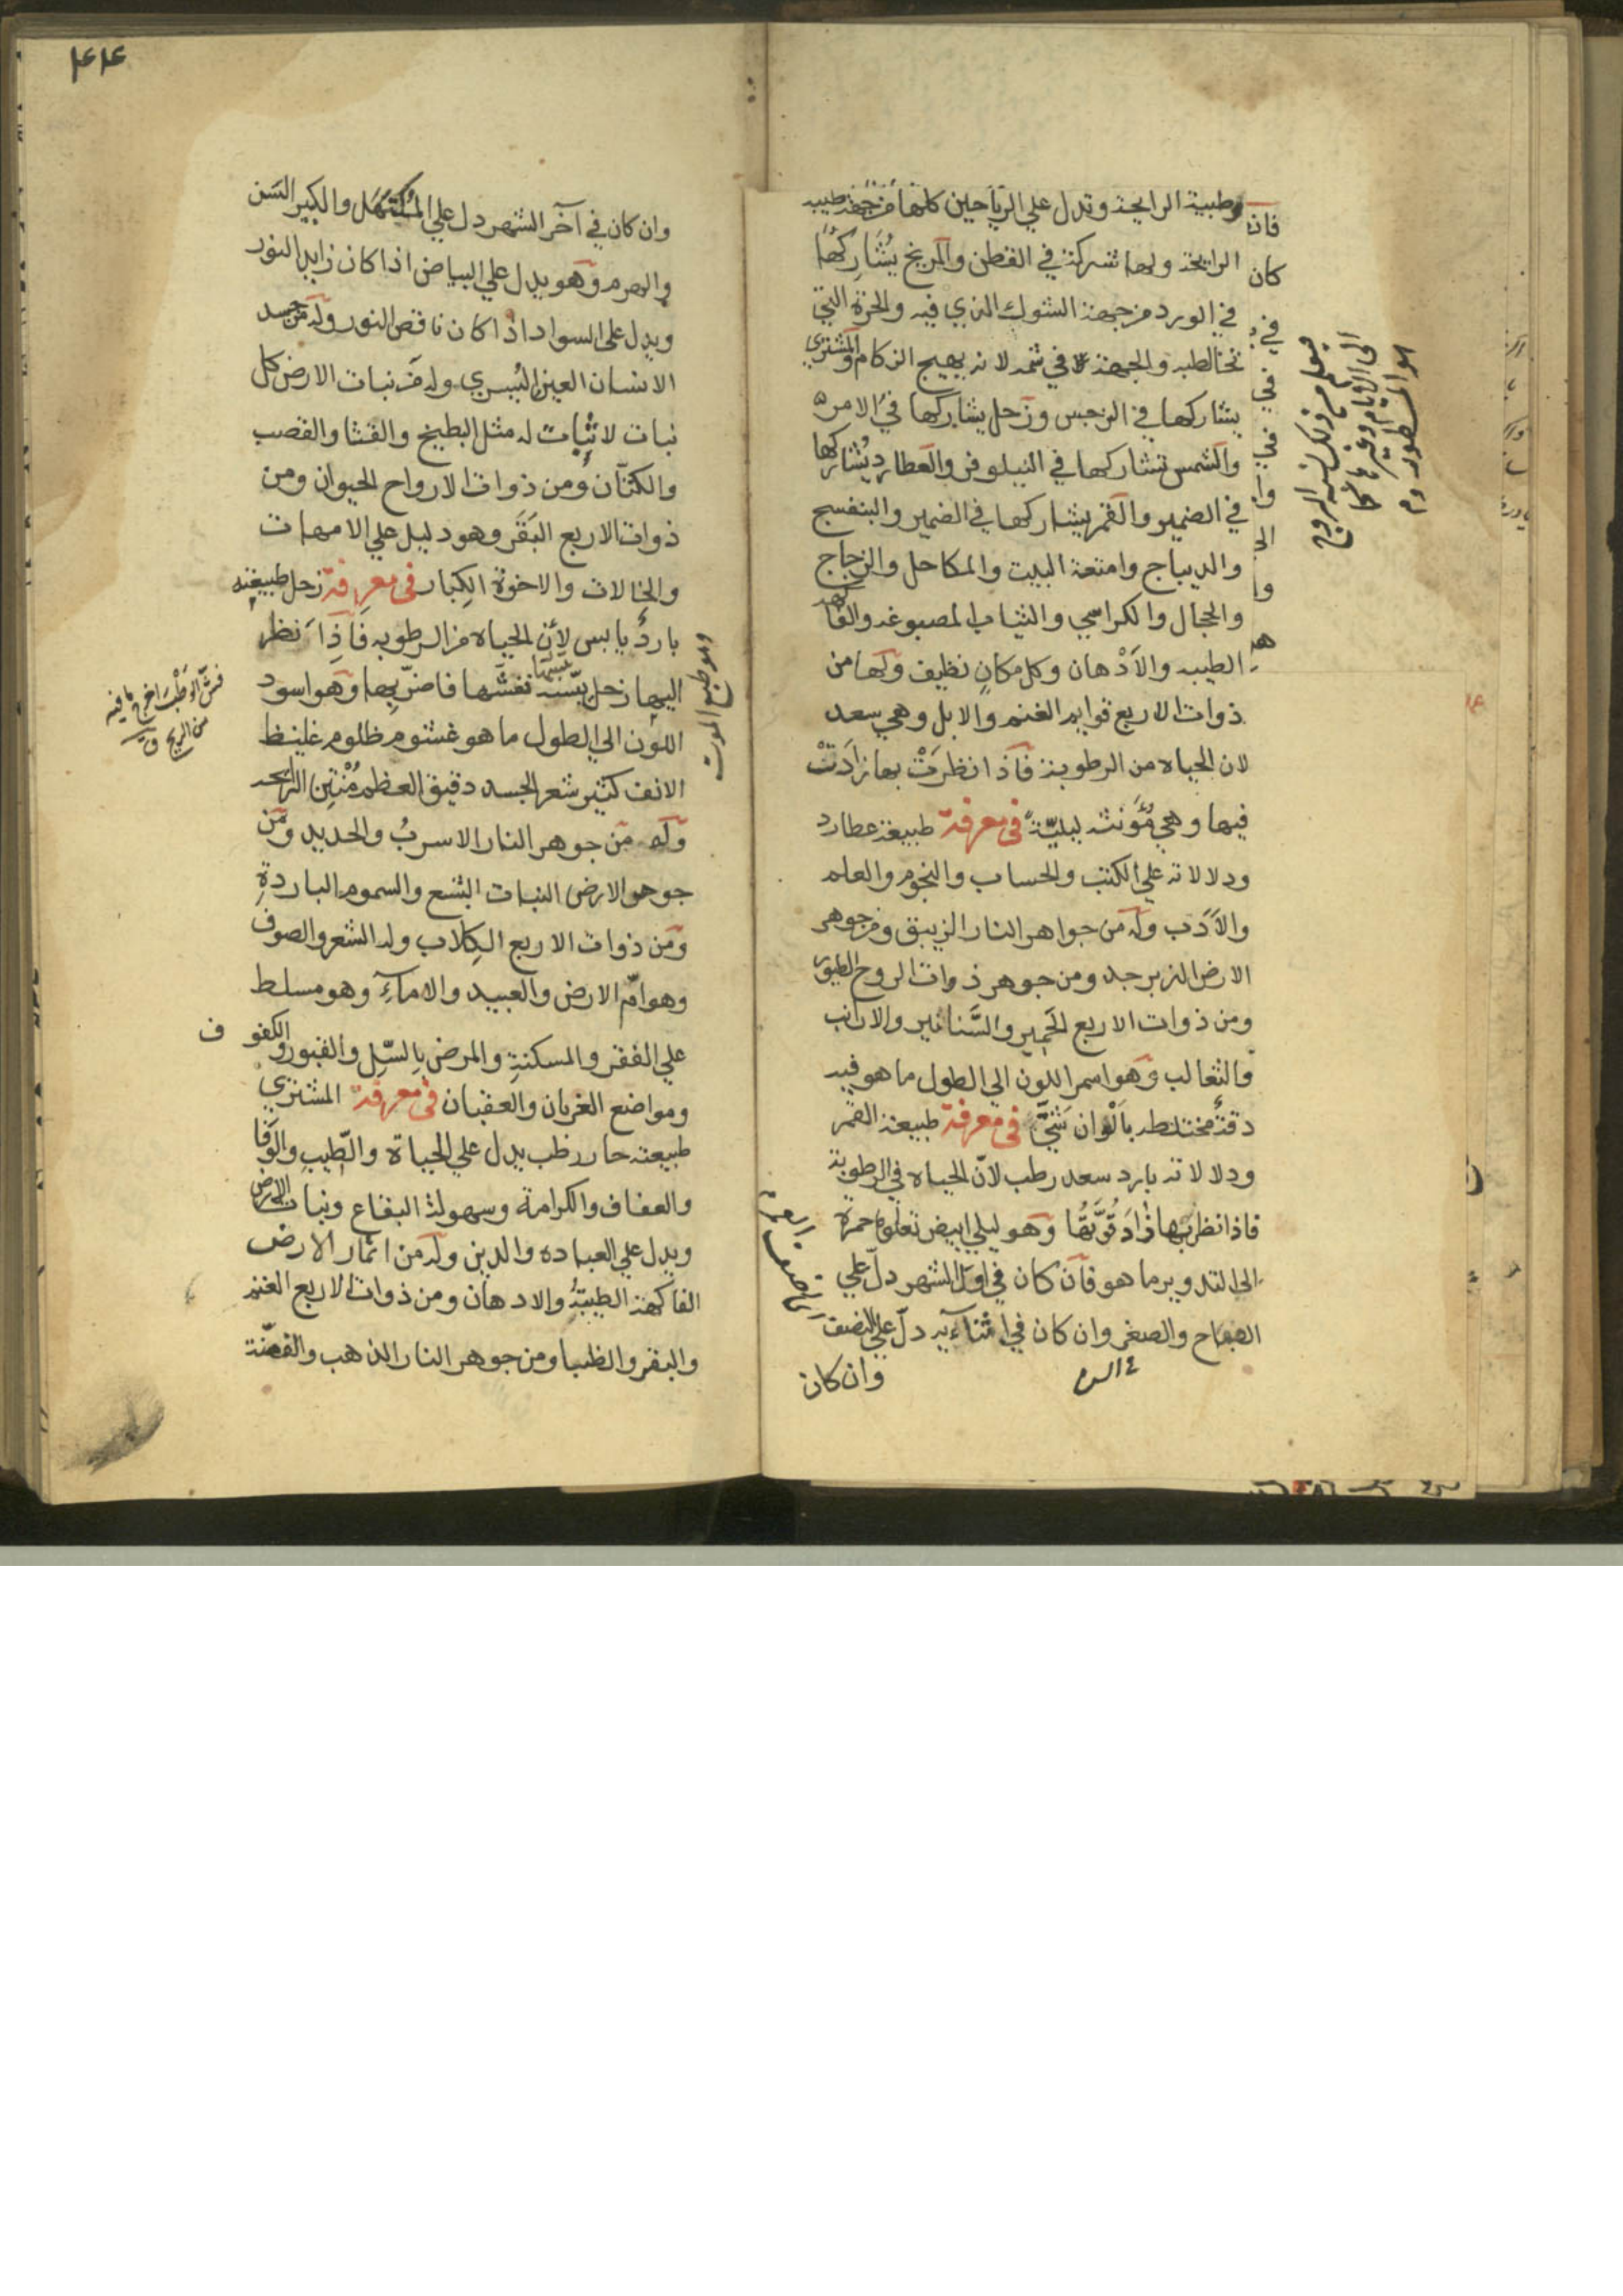 وطيبة الرايحة وتدل علي الرياحين كلها من جهة طيب
الرايحة ولها شركة في القطن والمريخ يُشَارِكُهَا
في الورد من جهة الشوك الذي فيه والحمرة التي
تخالطه والجهة في شمه لانه يهيج الزكام والمشتري
يشاركها في النرجس وزحل يشاركها في الامر
والشمس تشاركها في النيلوفر والعطارد يُشاركها
في الضمير والقمر يشاركها في الضمير والبنفسج
والديباج وامتعة البيت والمكاحل والزجاج
والحجال والكراسي والثياب المصبوغه والفاكهة
الطيبه والأدْهان وكل مكانٍ نظيف ولها من
ذوات الاربع قوايم الغنم والابل وهي سعد
لان الحياه من الرطوبة فاذا نظرَتْ بها زادَتْ
فيها وهي مُؤَنثه ليليّة في معرفة طبيعة عطارد
ودلالاته علي الكتب والحساب والنجوم والعلم
والأدَب وله من جواهر النار الزيبق ومن جوهر
الارض الزبرجد ومن جوهر ذوات الروح الطيور
ومن ذوات الاربع الحَمِير والسَّنانير والارانب
والثعالب وهو اسمر اللون الي الطول ما هو فيه
دقةٌ مختلطه بألْوان شَتيّ في معرفة طبيعة القمر
ودلالاته بارد سعد رطب لانّ الحياه في الرطوبة
فاذا نظر بها زادَ قُوَّتُهَا وهو ليلي ابيض تعلوه حمرة
الي التدوير ما هو فان كان في اول الشهر دلّ علي
والصغر وان كان في اثنآيه دلّ علي النصف
وان كان
٤٤
وان كان في آخر الشهر دل علي المُكْتَهَل والكبير السَن
والهرم وهو يدل علي البياض اذا كان زايد النور
ويدل علي السواد اذا كان ناقص النور وله من جسد
الانسان العين اليُسري وله من نبات الارض كل
نبات لا ثبات له مثل البطيخ والقثا والقصب
والكتّان ومن ذوات الارواح الحيوان ومن
ذوات الاربع البَقَر وهو دليل علي الامهات
والخالات والاخوة الكِبار في معرفة زحل طبيعته
باردٌ يابس لأن الحياه من الرطوبه فاَذَا نظر
اليها زحل يبّسها نفسّها فاضرّ بها وهو اسود
اللون الي الطول ما هو غشوم ظلوم غليظ
الانف كثير شعر الجسد دقيق العظم مُنْتِن الرايحه
وله من جوهر النار الاسربُ والحديد ومن
جوهر الارض النبات البشع والسموم الباردةِ
ومن ذوات الاربع الكِلاب وله الشعر والصوف
وهوامّ الارض والعبيد والامآءِ وهو مسلط
علي الفقر والمسكنةِ والمرض بالسّل والقبور والكفوف
ومواضع الغربان والعقبان في معرفة المشتري
طبيعته حار رطب يدل علي الحياة والطّيب والوَفا
والعفاف والكرامة وسهولة البقاع ونبات الارض
ويدل علي العباده والدين وله من اثمار الارض
الفاكهة الطيبةُ والادهان ومن ذوات الاربع الغنم
والبقر والظبا ومن جوهر النار الذهب والفضّة
وهو طبع الموت